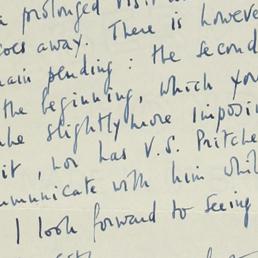 a prolonged visit
goes away. There is however
main pending: the second
the beginning, which you
slightly more imposing
it, nor has V.S. Pritche
mmunicate with him whil
I look forward to seeing